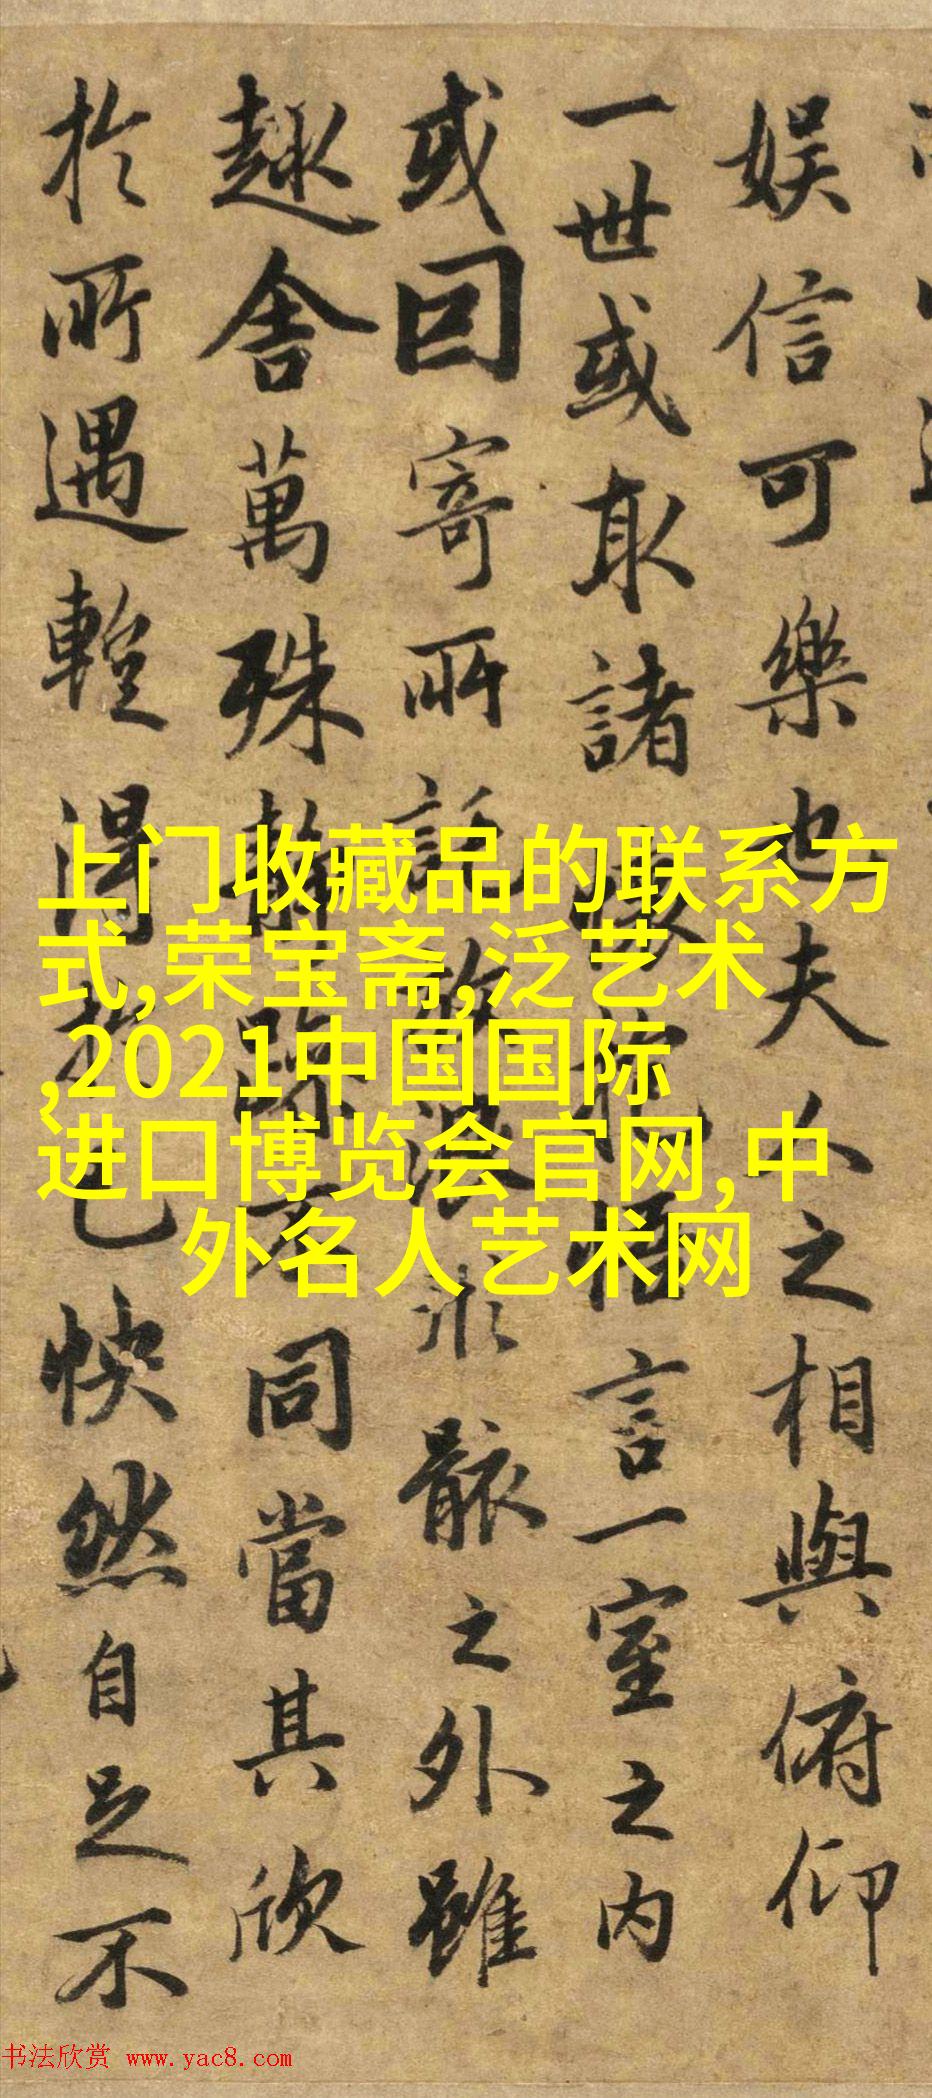 娱信可樂也夫人之相與俯仰
一世或取諸懷抱悟言一室之内
或囙寄所託放浪形骸之外雖
趣舍萬殊静躁不同當其欣
於所遇蹔得於己快然自足不
上门收藏品的联系方
式,荣宝斋,泛艺术
,2021中国国际
进口博览会官网,中
外名人艺术网
书法欣赏 www.yac8.com